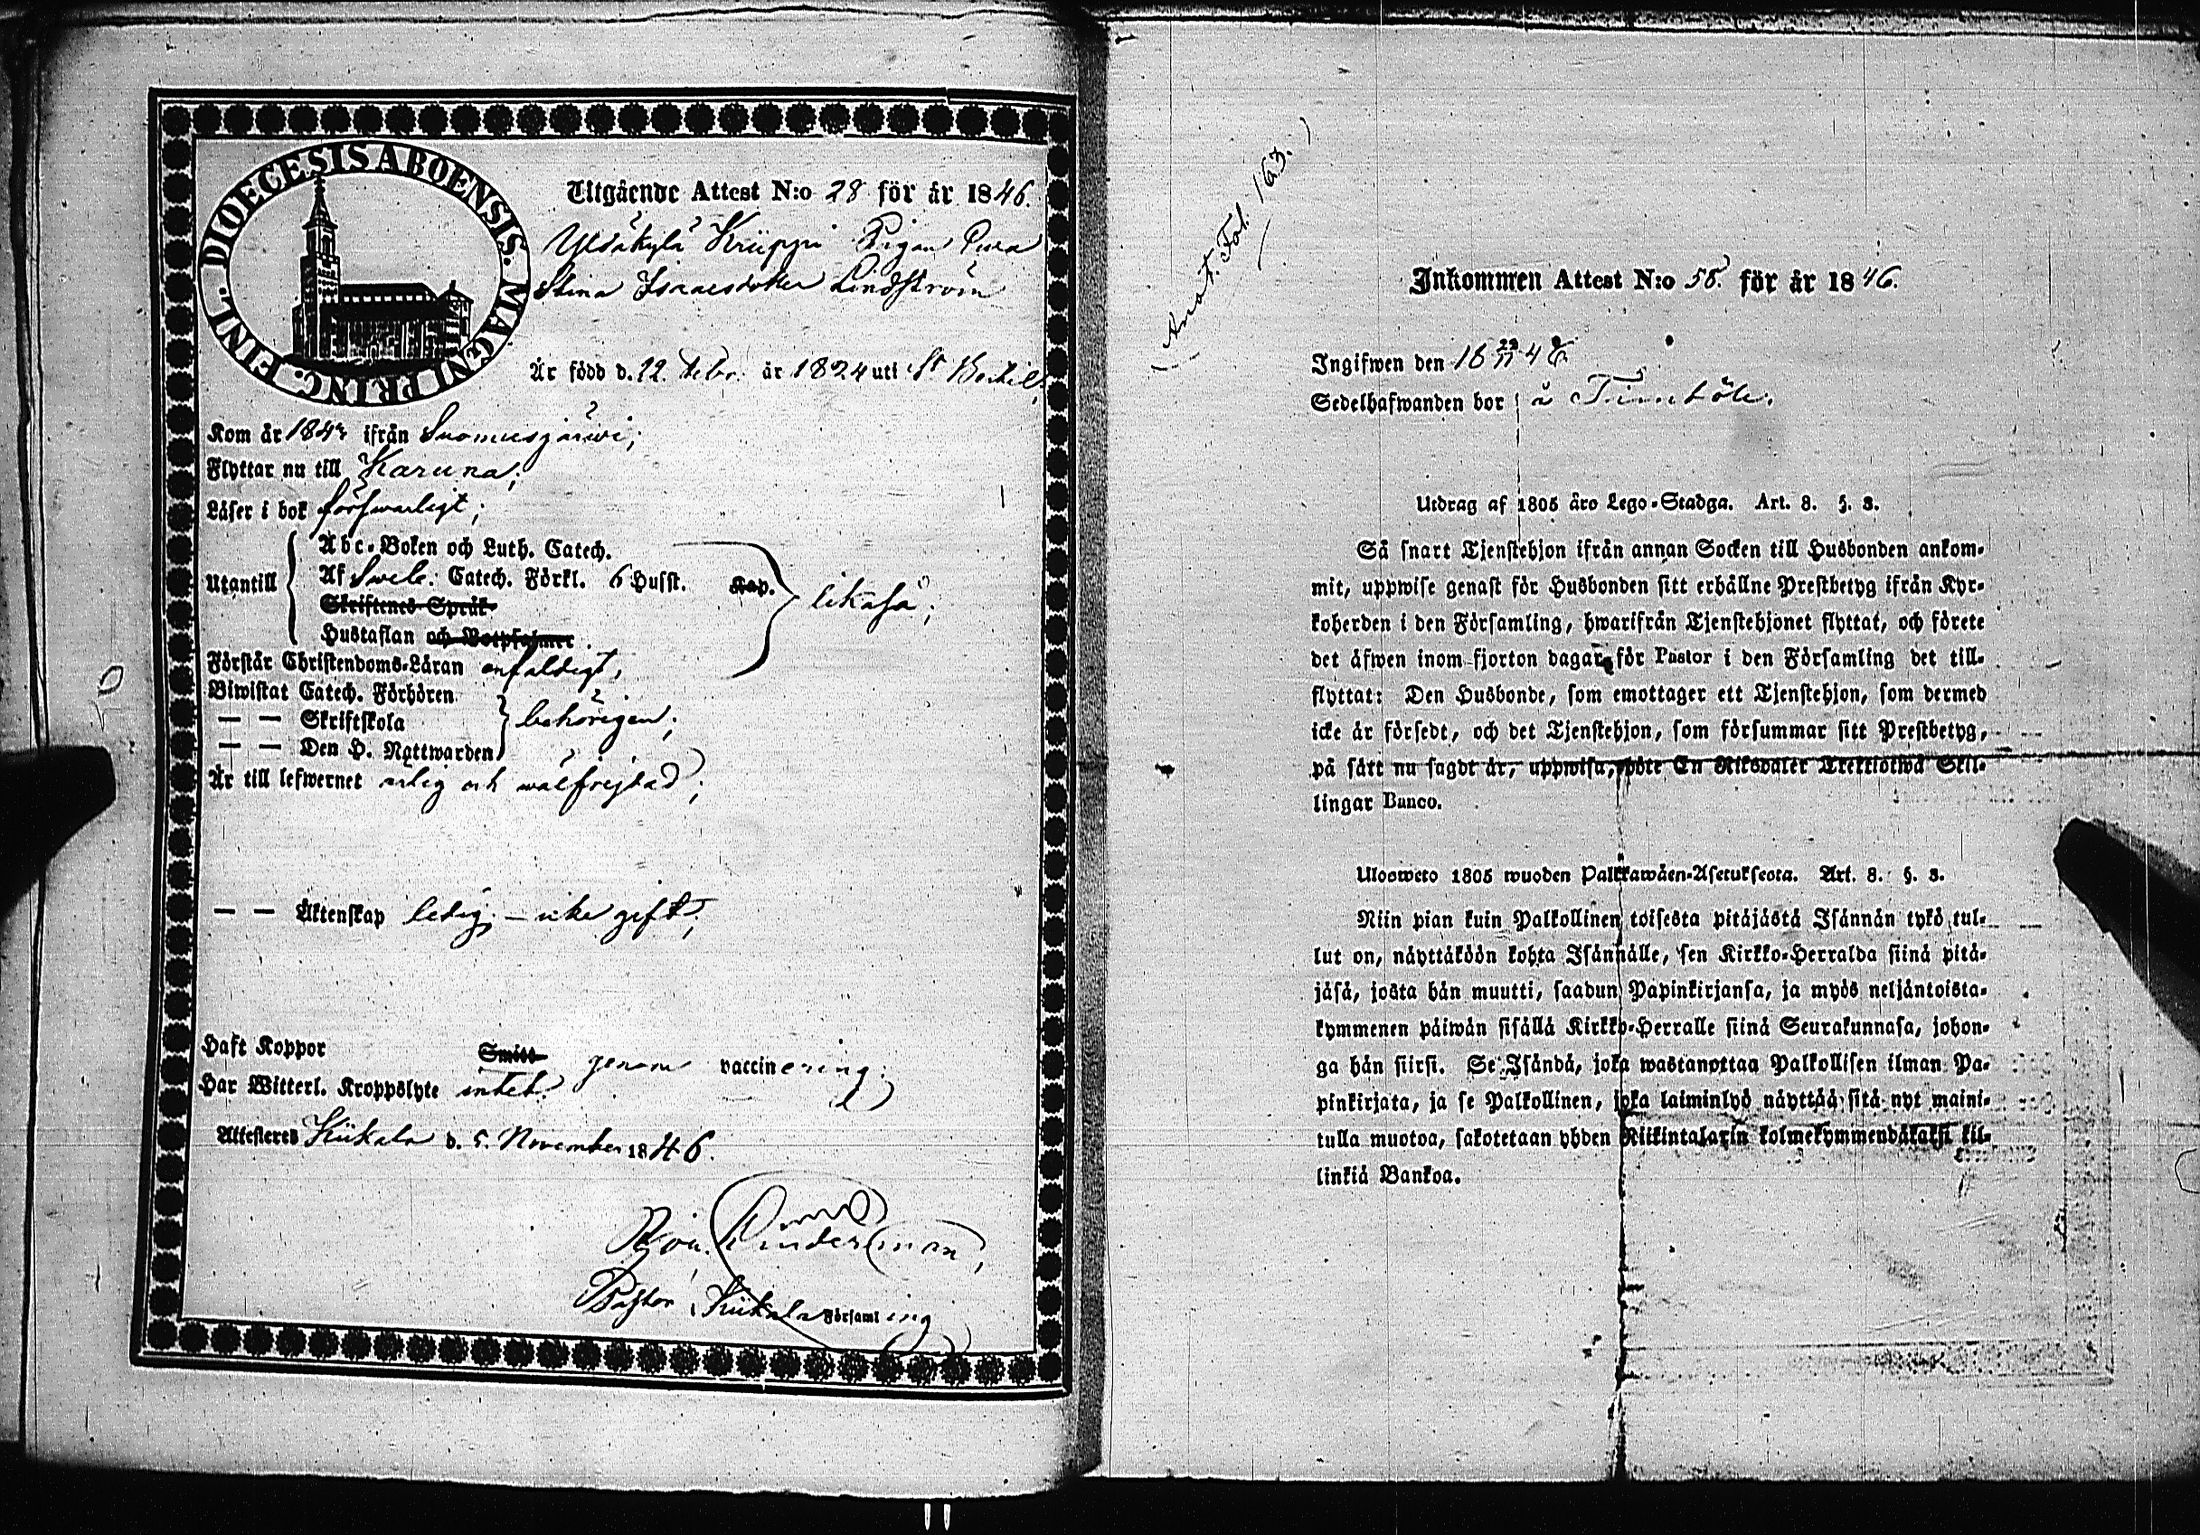 DIOECESIS ABOENSIS. MAGNI PRINC. FINL.
Utgående Attest N:o 28 för år 1846.
Yltäkylä Krüppi Pigan Eva
Stina Isaacsdotter Lindström
Är född d. 22 Febr. år 1824 uti St Bertils,
Kom år 1843 ifrån Suomusjärwi;
Flyttar nu till Karuna;
Läser i bok förswarligt;
Utantill
Abc-Boken och Luth. Catech.
Af Sweb. Catech. Förkl. 6 Husst. Kap.
Skriftenes Språk
Hustaflan och Botpsalmer
likaså;
Förstår Christendoms-Läran enfaldigt;
Biwistat Catech. Förhören
— — Skriftskola
— — Den H. Nattwarden
behörigen;
Är till lefwernet ärlig och wälfrejdad;
— — Äktenskap ledig — icke gift;
Haft Koppor Smitt genom vaccinering;
Har Witterl. Kroppslyte intet.
Attesteras Kiikala d. 5 November 1846.
Linderman,
Pastor i Kiikala Församling
Fol. 163.
Inkommen Attest N:o 58. för år 1846.
Ingifwen den 18 23/11 46
Sedelhafwanden bor å
Utdrag af 1805 åro Lego-Stadga. Art. 8. §. 3.
Så snart Tjenstehjon ifrån annan Socken till Husbonden ankom-
mit, uppwise genast för Husbonden sitt erhållne Prestbetyg ifrån Kyr-
koherden i den Församling, hwarifrån Tjenstehjonet flyttat, och förete
det åfwen inom fjorton dagar för Pastor i den Församling det till-
flyttat: Den Husbonde, som emottager ett Tjenstehjon, som dermed
icke är försedt, och det Tjenstehjon, som försummar sitt Prestbetyg,
på sätt nu sagdt är, uppwisa, böte En Riksdaler Trettiotwå Skil-
lingar Banco.
Ulosweto 1805 wuoden Palkkawäen-Asetuksesta. Art. 8. §. 3.
Niin pian kuin Palkollinen toisesta pitäjästä Isännän tykö tul-
lut on, näyttäköön kohta Isännälle, sen Kirkko-Herralda siinä pitä-
jäsä, josta hän muutti, saadun Papinkirjansa, ja myös neljäntoista-
kymmenen päiwän sisällä Kirkko-Herralle siinä Seurakunnasa, johon-
ga hän siirsi. Se Isändä, joka wastanottaa Palkollisen ilman Pa-
pinkirjata, ja se Palkollinen, joka laiminlyö näyttää sitä nyt maini-
tulla muotoa, sakotetaan yhden Riikintalarin kolmekymmendäkaksi kil-
linkiä Bankoa.